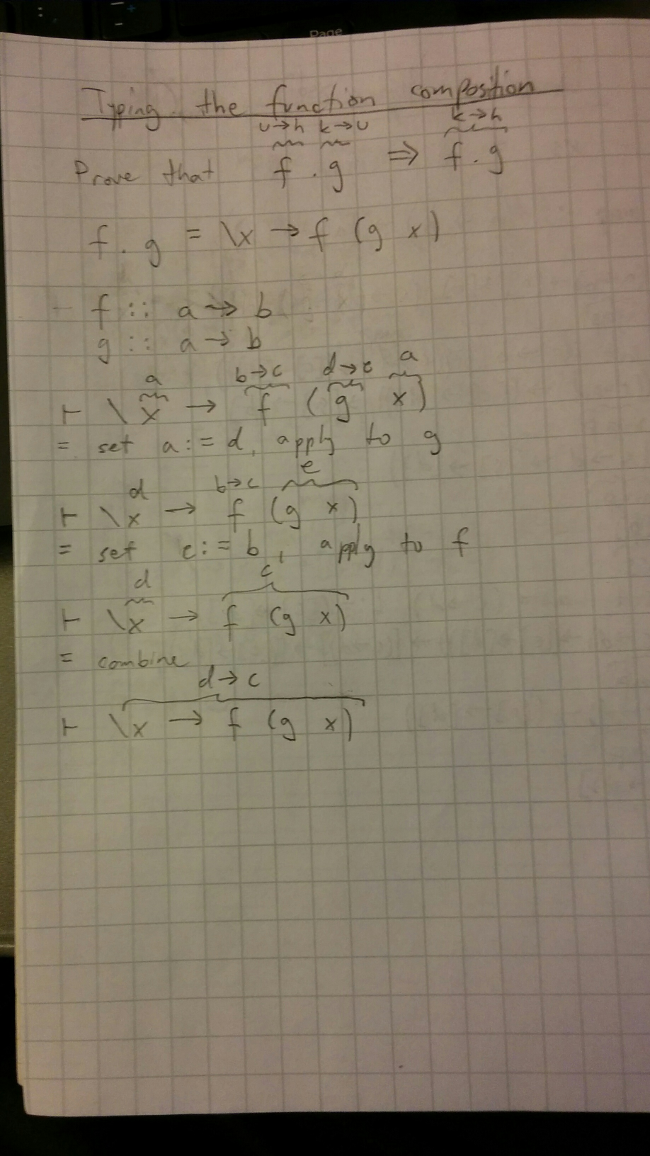 Page
Typing the function composition
u→h k→u k→h
Prove that f . g ⇒ f . g
f . g = \x → f (g x)
f :: a → b
g :: a → b
a b→c d→e a
⊢ \x → f (g x)
= set a := d, apply to g
d b→c e
⊢ \x → f (g x)
= set e := b, apply to f
d c
⊢ \x → f (g x)
= combine
d→c
⊢ \x → f (g x)